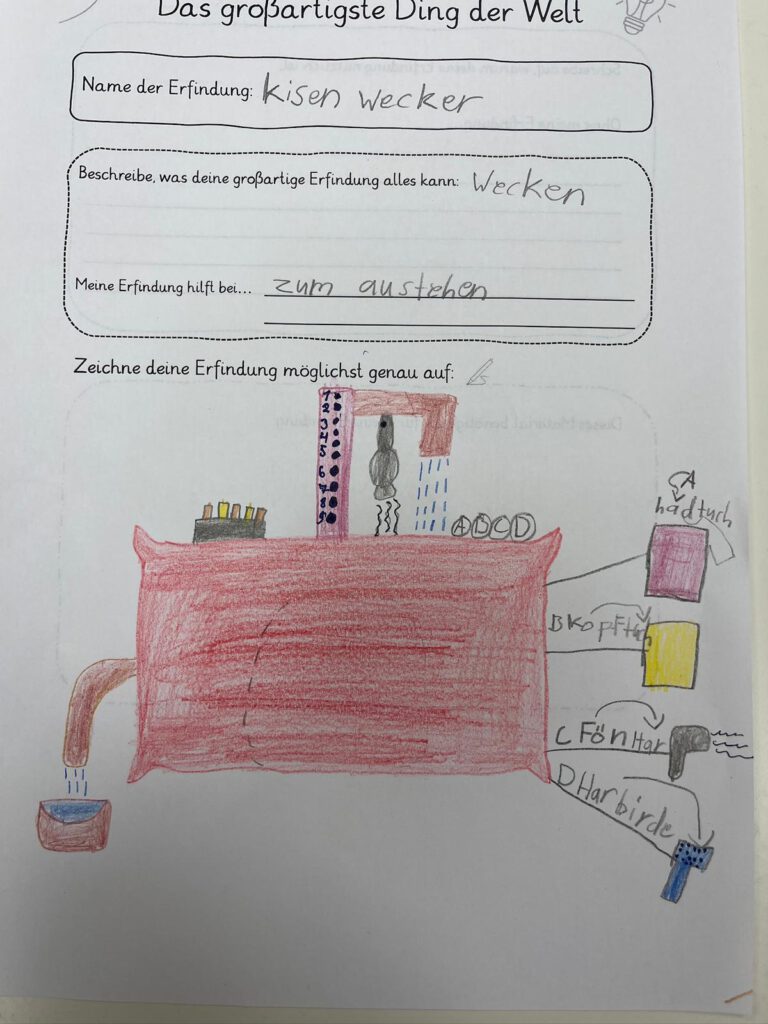 Das großartigste Ding der Welt
Name der Erfindung: kisen wecker
Beschreibe, was deine großartige Erfindung alles kann: Wecken
Meine Erfindung hilft bei... zum austehen
Zeichne deine Erfindung möglichst genau auf:
1
2
3
4
5
6
7
8
9
A B C D
A
hadtuch
B Kopftuch
C Fön Har
D Harbirde